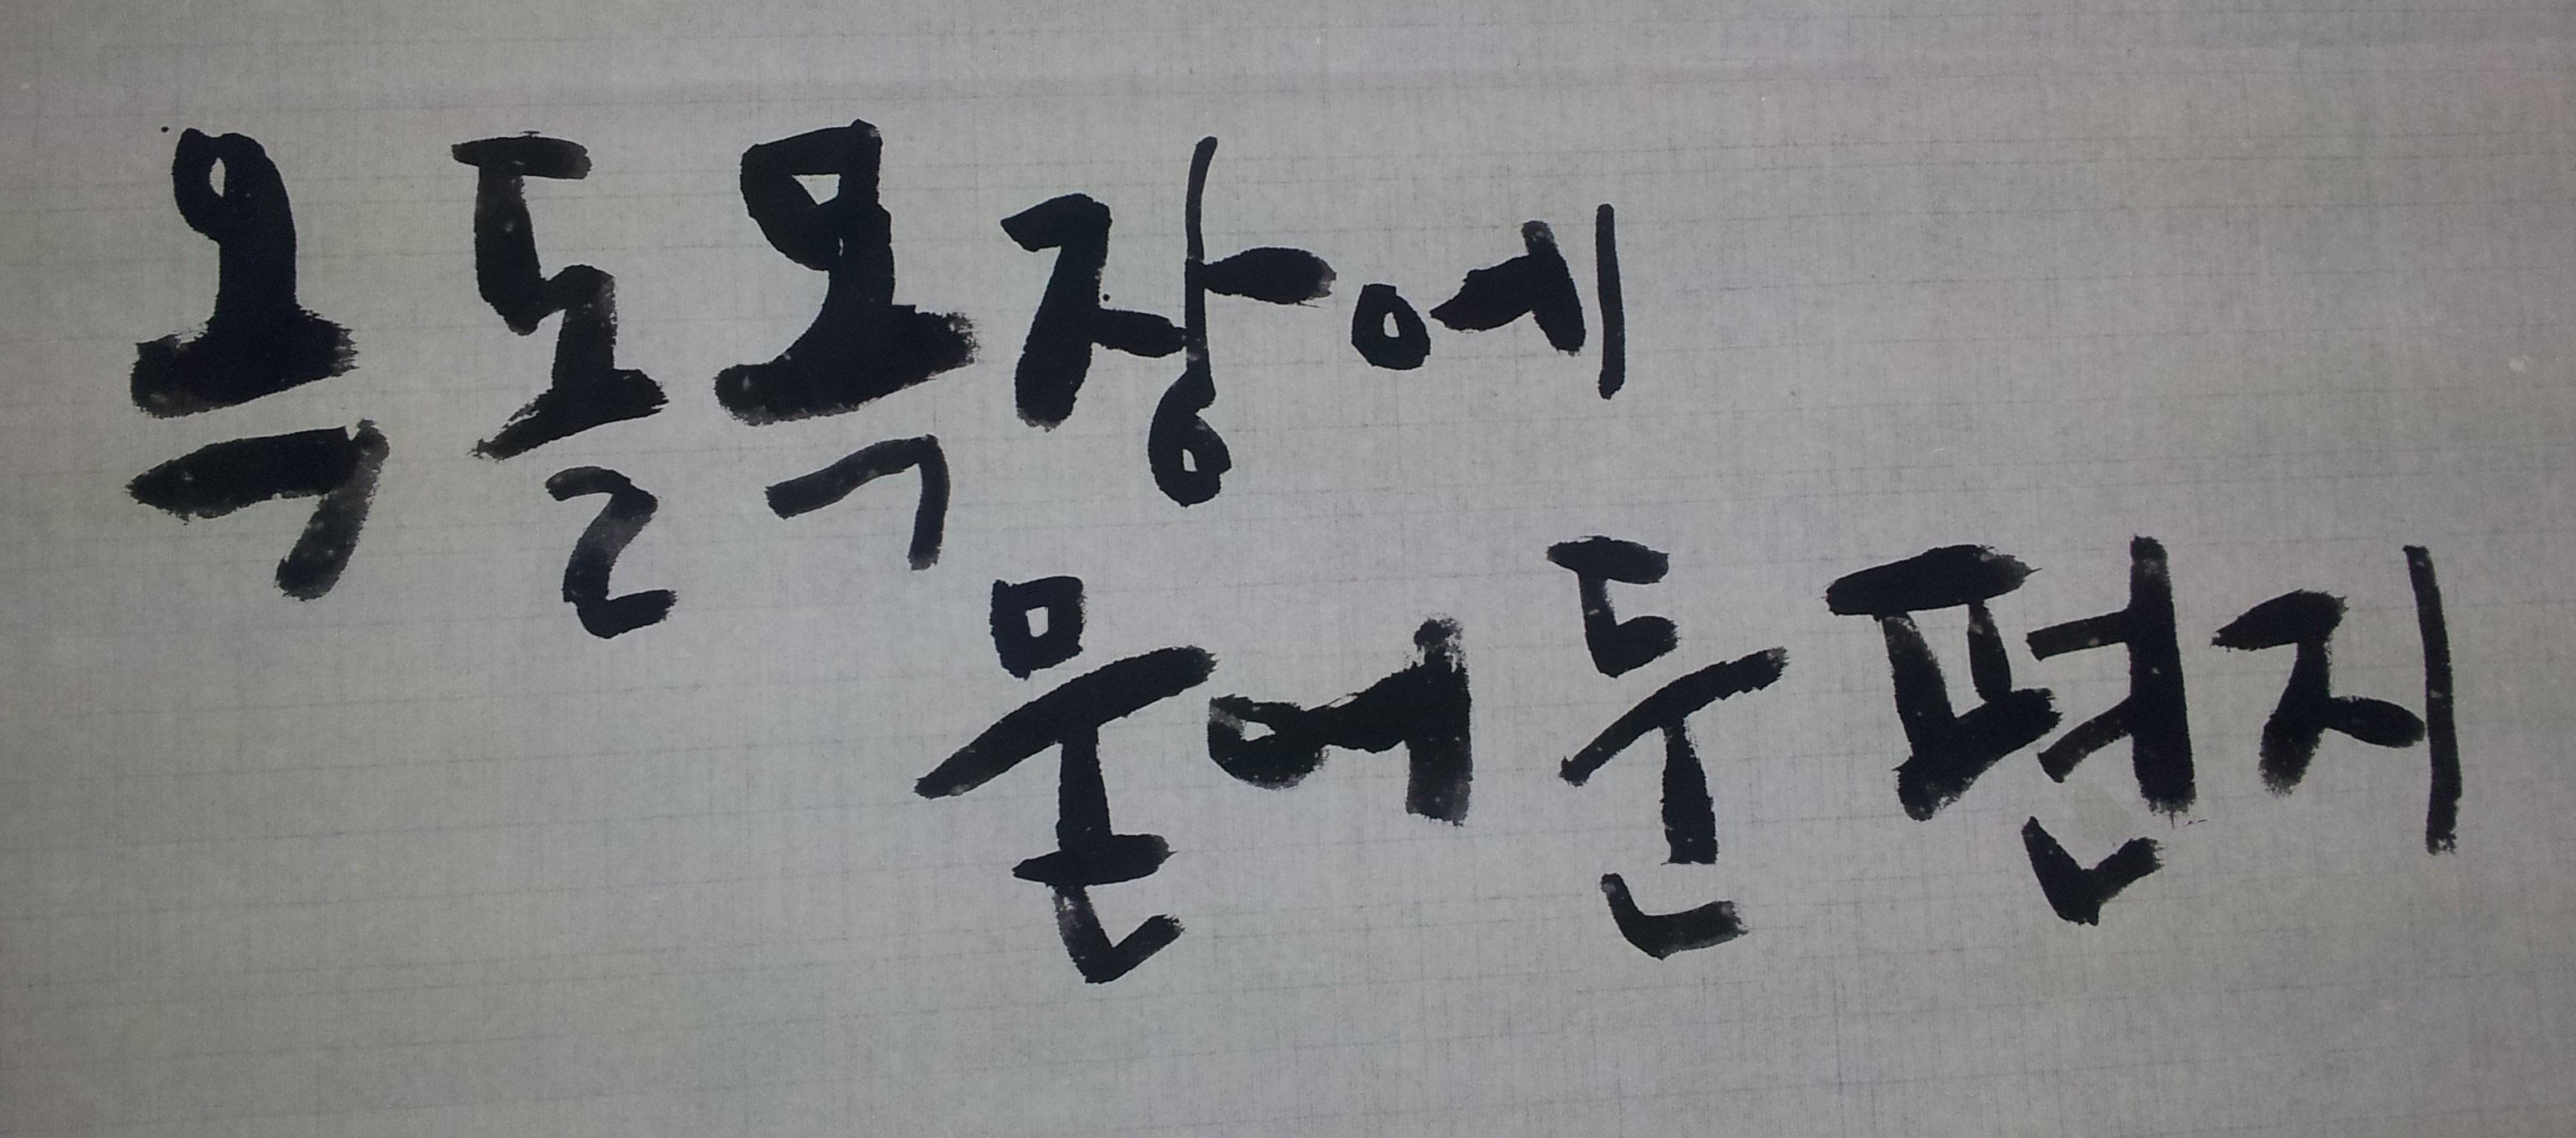 옥돌목장에
묻어둔편지